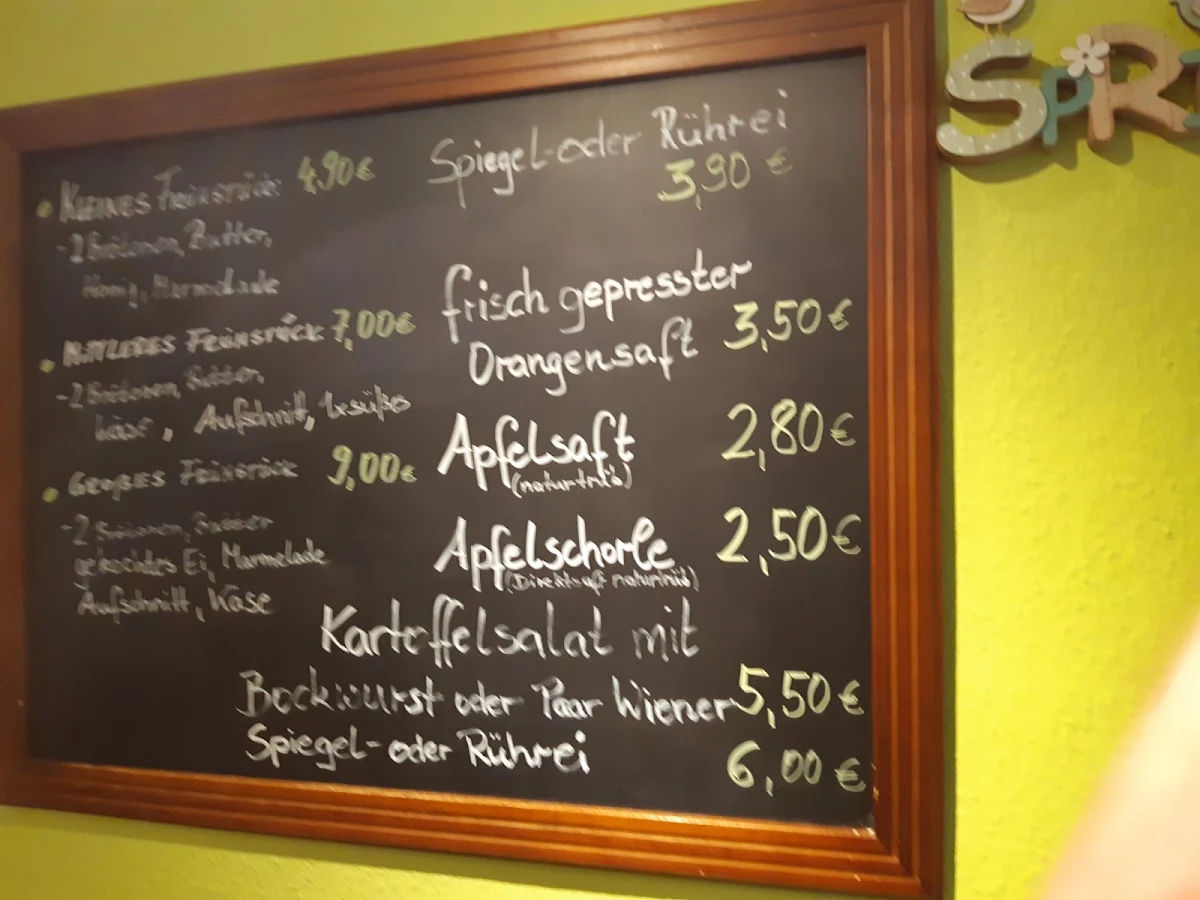 KLEINES FRÜHSTÜCK 4,90€
- 2 Brötchen, Butter,
Honig, Marmelade
MITTLERES FRÜHSTÜCK 7,00€
- 2 Brötchen, Butter,
Käse, Aufschnitt, 1x süßes
GROßES FRÜHSTÜCK 9,00€
- 2 Brötchen, Butter
gekochtes Ei, Marmelade
Aufschnitt, Käse
Spiegel-oder Rührei
3,90 €
frisch gepresster
Orangensaft 3,50€
Apfelsaft 2,80€
(naturtrüb)
Apfelschorle 2,50€
(Direktsaft naturtrüb)
Kartoffelsalat mit
Bockwurst oder Paar Wiener 5,50€
Spiegel-oder Rührei 6,00€